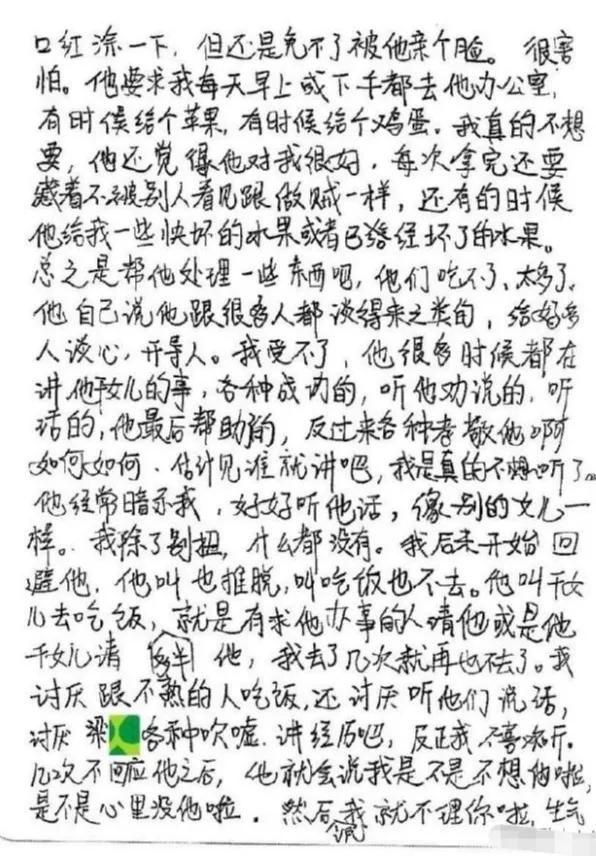 口红涂一下，但还是免不了被他亲个脸。很害
怕。他要求我每天早上或下午都去他办公室，
有时候给个苹果，有时候给个鸡蛋。我真的不想
要，他还觉得他对我很好，每次拿完还要
藏着不被别人看见跟做贼一样，还有的时候
他给我一些快坏的水果或者已经坏了的水果。
总之是帮他处理一些东西吧，他们吃不了、太多了。
他自己说他跟很多人都谈得来之类的，给好多
人谈心，开导人。我受不了，他很多时候都在
讲他干女儿的事，各种成功的，听他劝说的，听
话的，他最后帮助的，反过来各种孝敬他啊
如何如何，估计见谁就讲吧，我是真的不想听了。
他经常暗示我，好好听他话，像别的女儿一
样。我除了别扭，什么都没有。我后来开始回
避他，他叫也推脱，叫吃饭也不去。他叫干女
儿去吃饭，就是有求他办事的人请他或是他
干女儿请他，我去了几次就再也不去了。我
讨厌跟不熟的人吃饭，还讨厌听他们说话，
讨厌梁各种吹嘘，讲经历吧，反正我不喜欢听。
几次不回应他之后，他就会说我是不是不想他啦，
是不是心里没他啦。然后我就不理你啦，生气